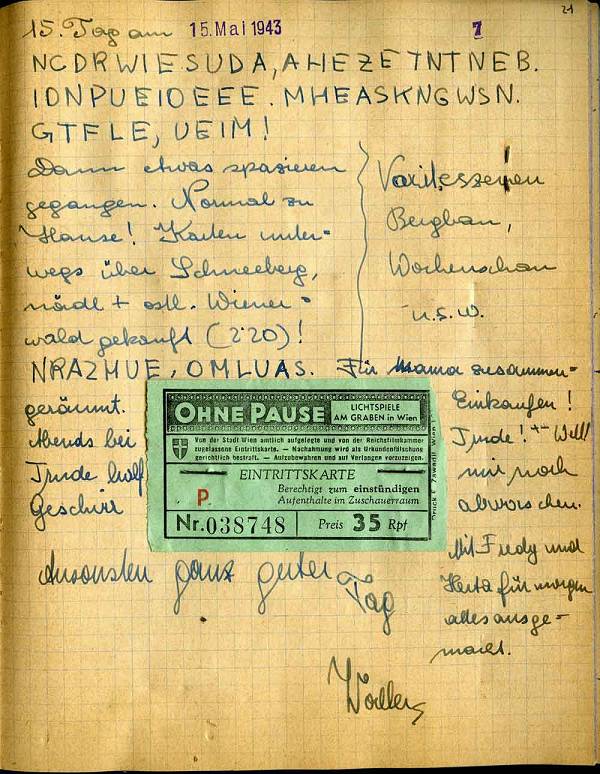 21
15. Tag am 15. Mai 1943 7
NCDRWIESUDA, AHEZETNTNEB.
IONPUEIOEEE. MHEASKNGWSN.
GTFLE, UEIM!
Dann etwas spazieren
gegangen. Normal zu
Hause! Karten unter-
wegs über Schneeberg,
nördl + östl. Wiener-
wald gekauft (2·20)!
Bergbau,
Wochenschau
u.s.w.
NRAZMUE, OMLUAS. Für Mama zusammen-
geräumt.
Abends bei
Trude half
Geschirr
Einkaufen!
Trude! Will
mir noch
Mit Fredy und
Herta für morgen
alles ausge-
macht.
OHNE PAUSE LICHTSPIELE
AM GRABEN in Wien
Von der Stadt Wien amtlich aufgelegte und von der Reichsfilmkammer
zugelassene Eintrittskarte. — Nachahmung wird als Urkundenfälschung
gerichtlich bestraft. — Aufzubewahren und auf Verlangen vorzuzeigen.
EINTRITTSKARTE
P Berechtigt zum einstündigen
Aufenthalte im Zuschauerraum
Nr. 038748 Preis 35 Rpf
Ansonsten ganz guter
Tag